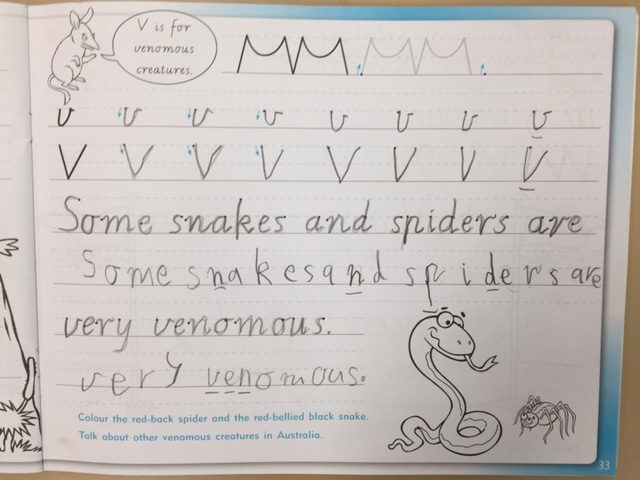 V is for
venomous
creatures.
v v v v v v v v
V V V V V V V V
Some snakes and spiders are
Some snakes and spiders are
very venomous.
very venomous.
Colour the red-back spider and the red-bellied black snake.
Talk about other venomous creatures in Australia.
33